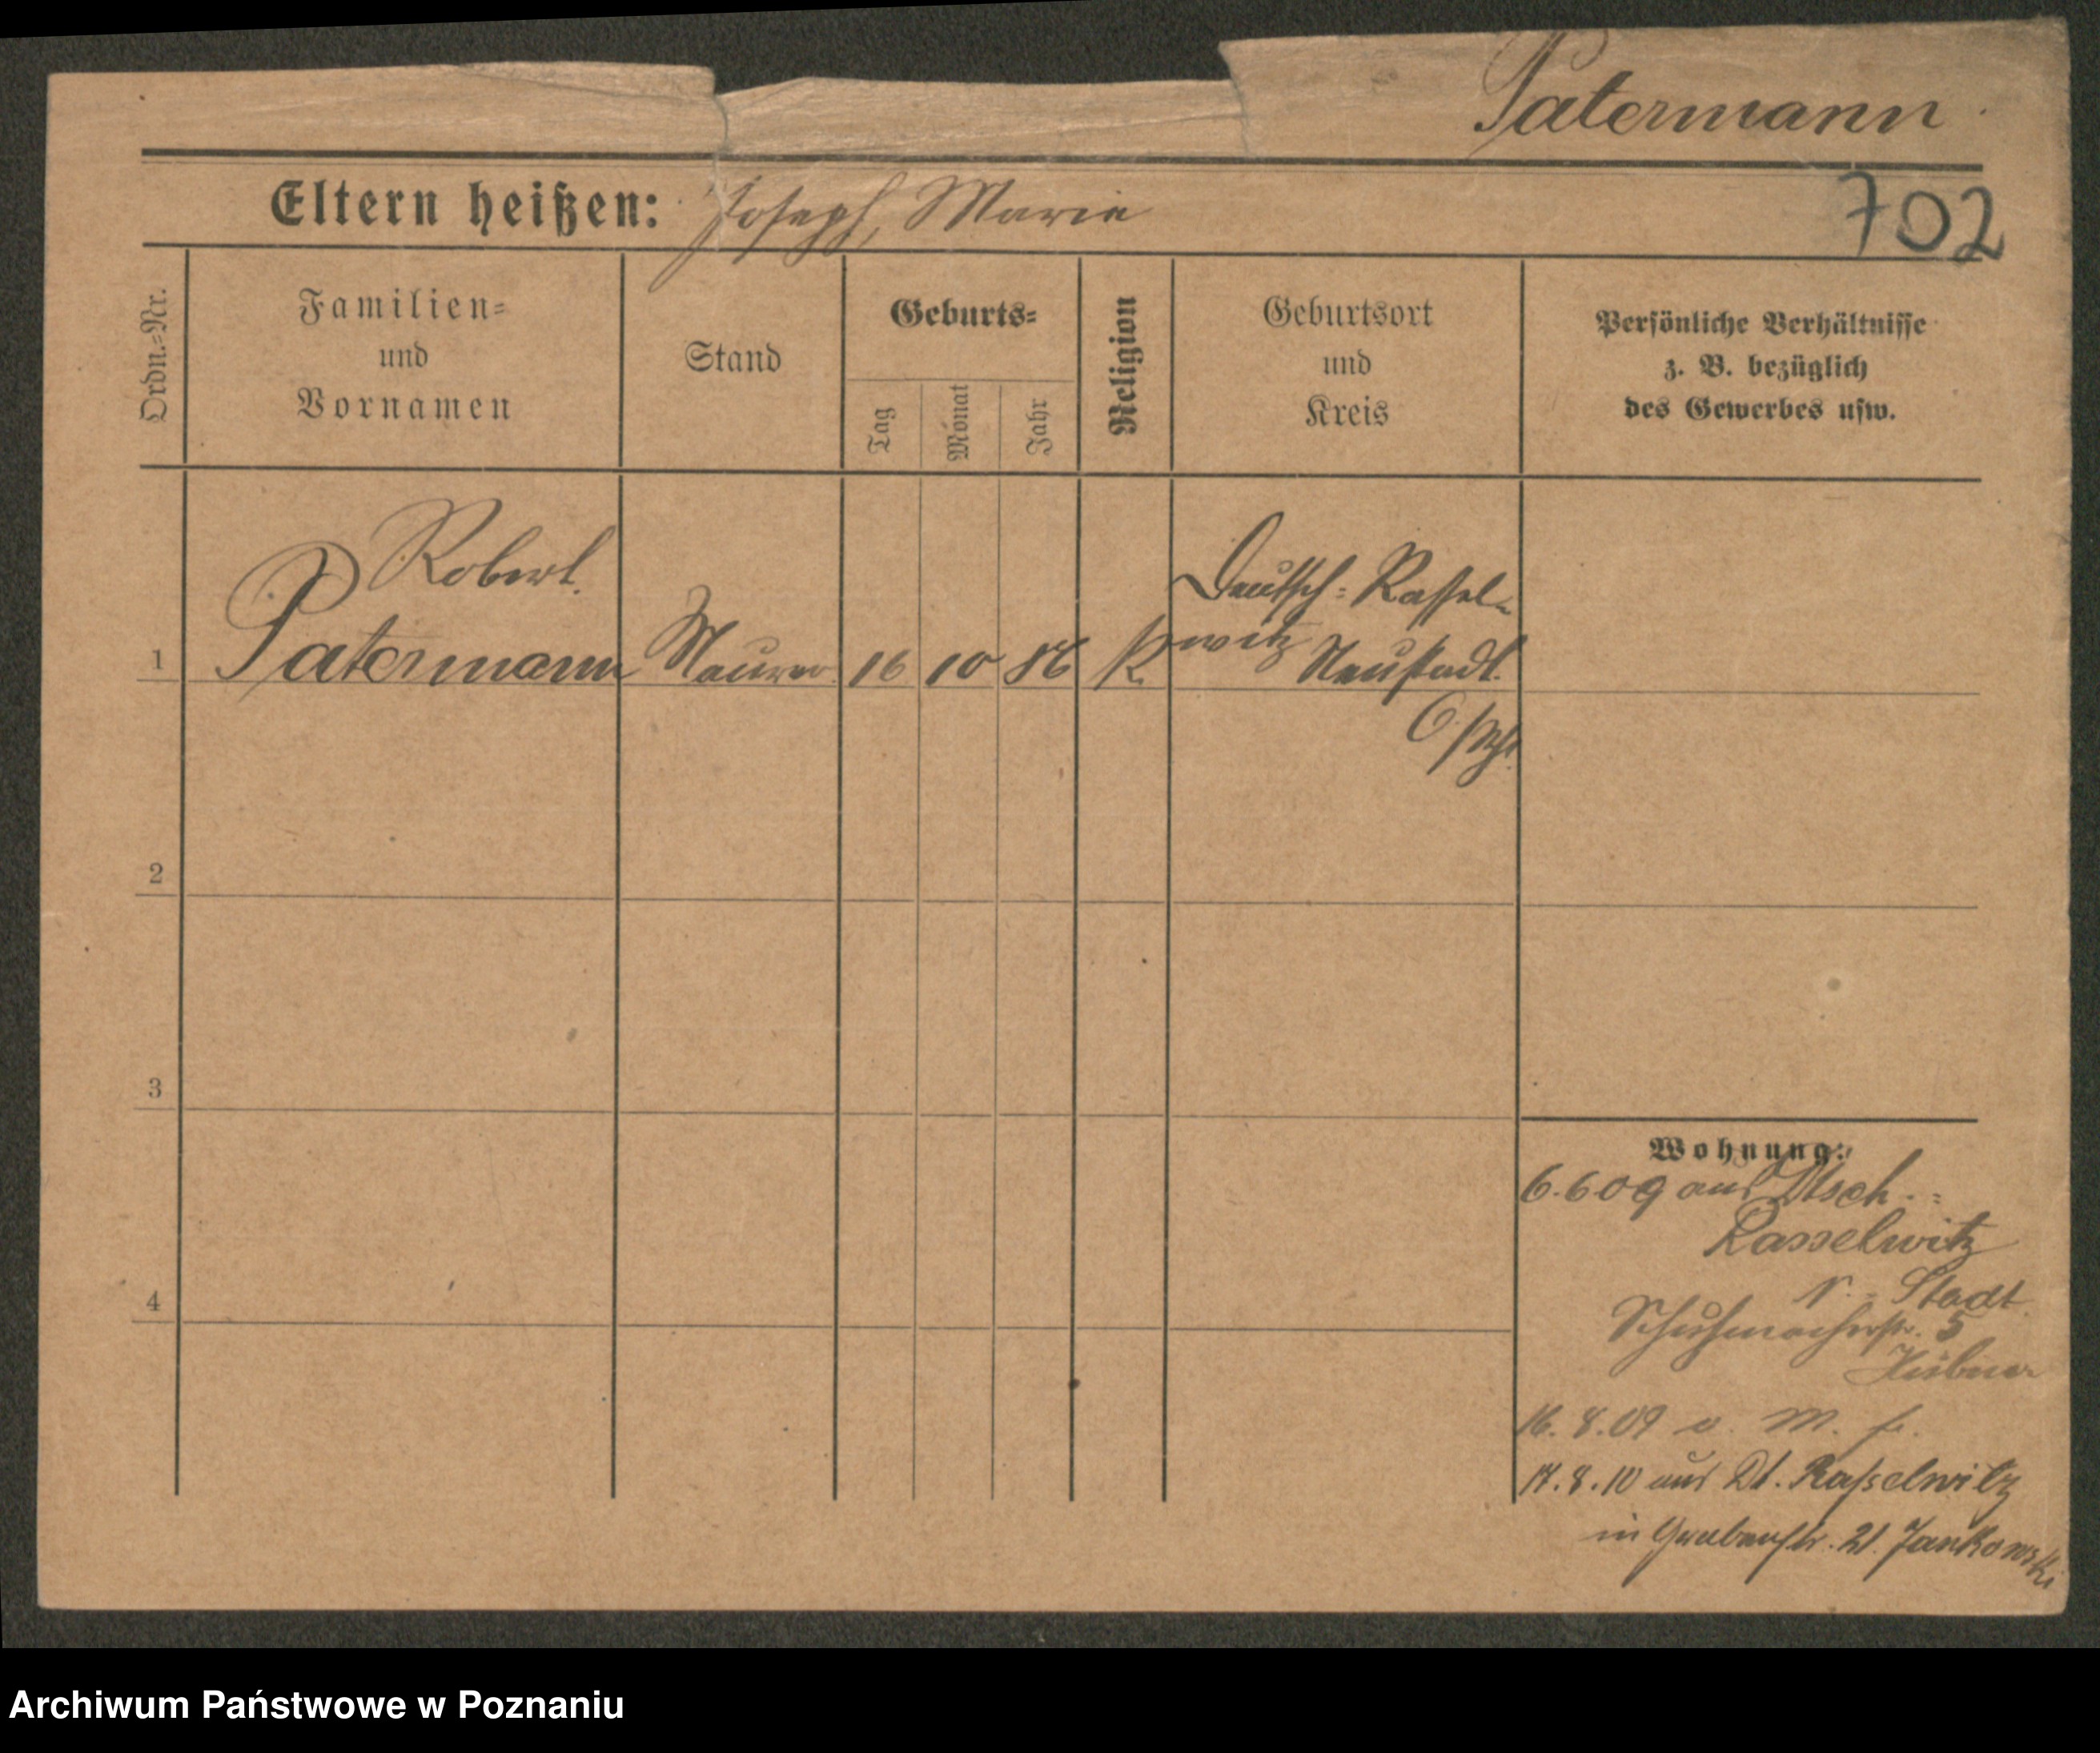 Patermann
Eltern heißen: Joseph, Marie
702
Ordn.=Nr.
Familien=
und
Vornamen
Stand
Geburts=
Tag
Monat
Jahr
Religion
Geburtsort
und
Kreis
Persönliche Verhältnisse
z. B. bezüglich
des Gewerbes usw.
Robert
Patermann
1
Maurer
16 10 86
K.
Deutsch=Rassel=
witz
Neustadt
2
3
4
Wohnung:
6.6 09 aus Dtsch.=
Rasselwitz
N.=Stadt
Schuhmacherstr. 5
Hübner
16.8.09 v. M. f.
17.8.10 aus Dt. Rasselwitz
in Grabenstr. 21. Jankowski
Archiwum Państwowe w Poznaniu